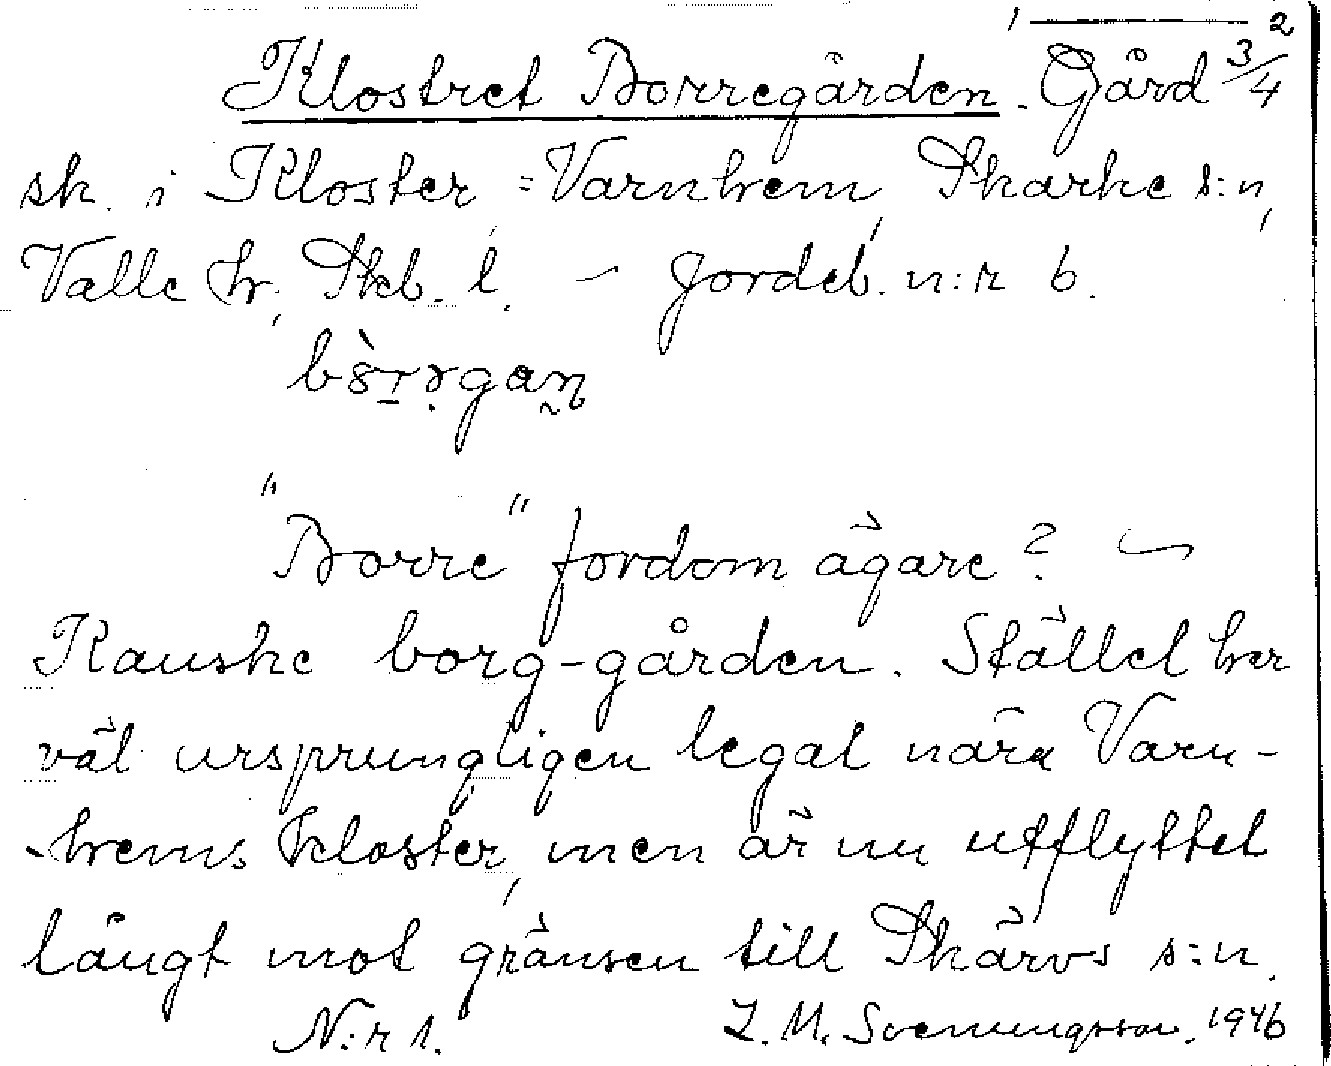 1 ——— 2
Klostret Borregården. Gård 3/4
sk. i Kloster, =Varnhem, Skarke s:n,
Valle hr, Skb. l. – Jordeb. n:r 6.
"Borre" fordom ägare? –
Kanske borg-gården. Stället har
väl ursprungligen legat nära Varn-
-hems kloster, men är nu utflyttat
långt mot gränsen till Skärvs s:n.
N:r 1. L. M. Svenungsson. 1946